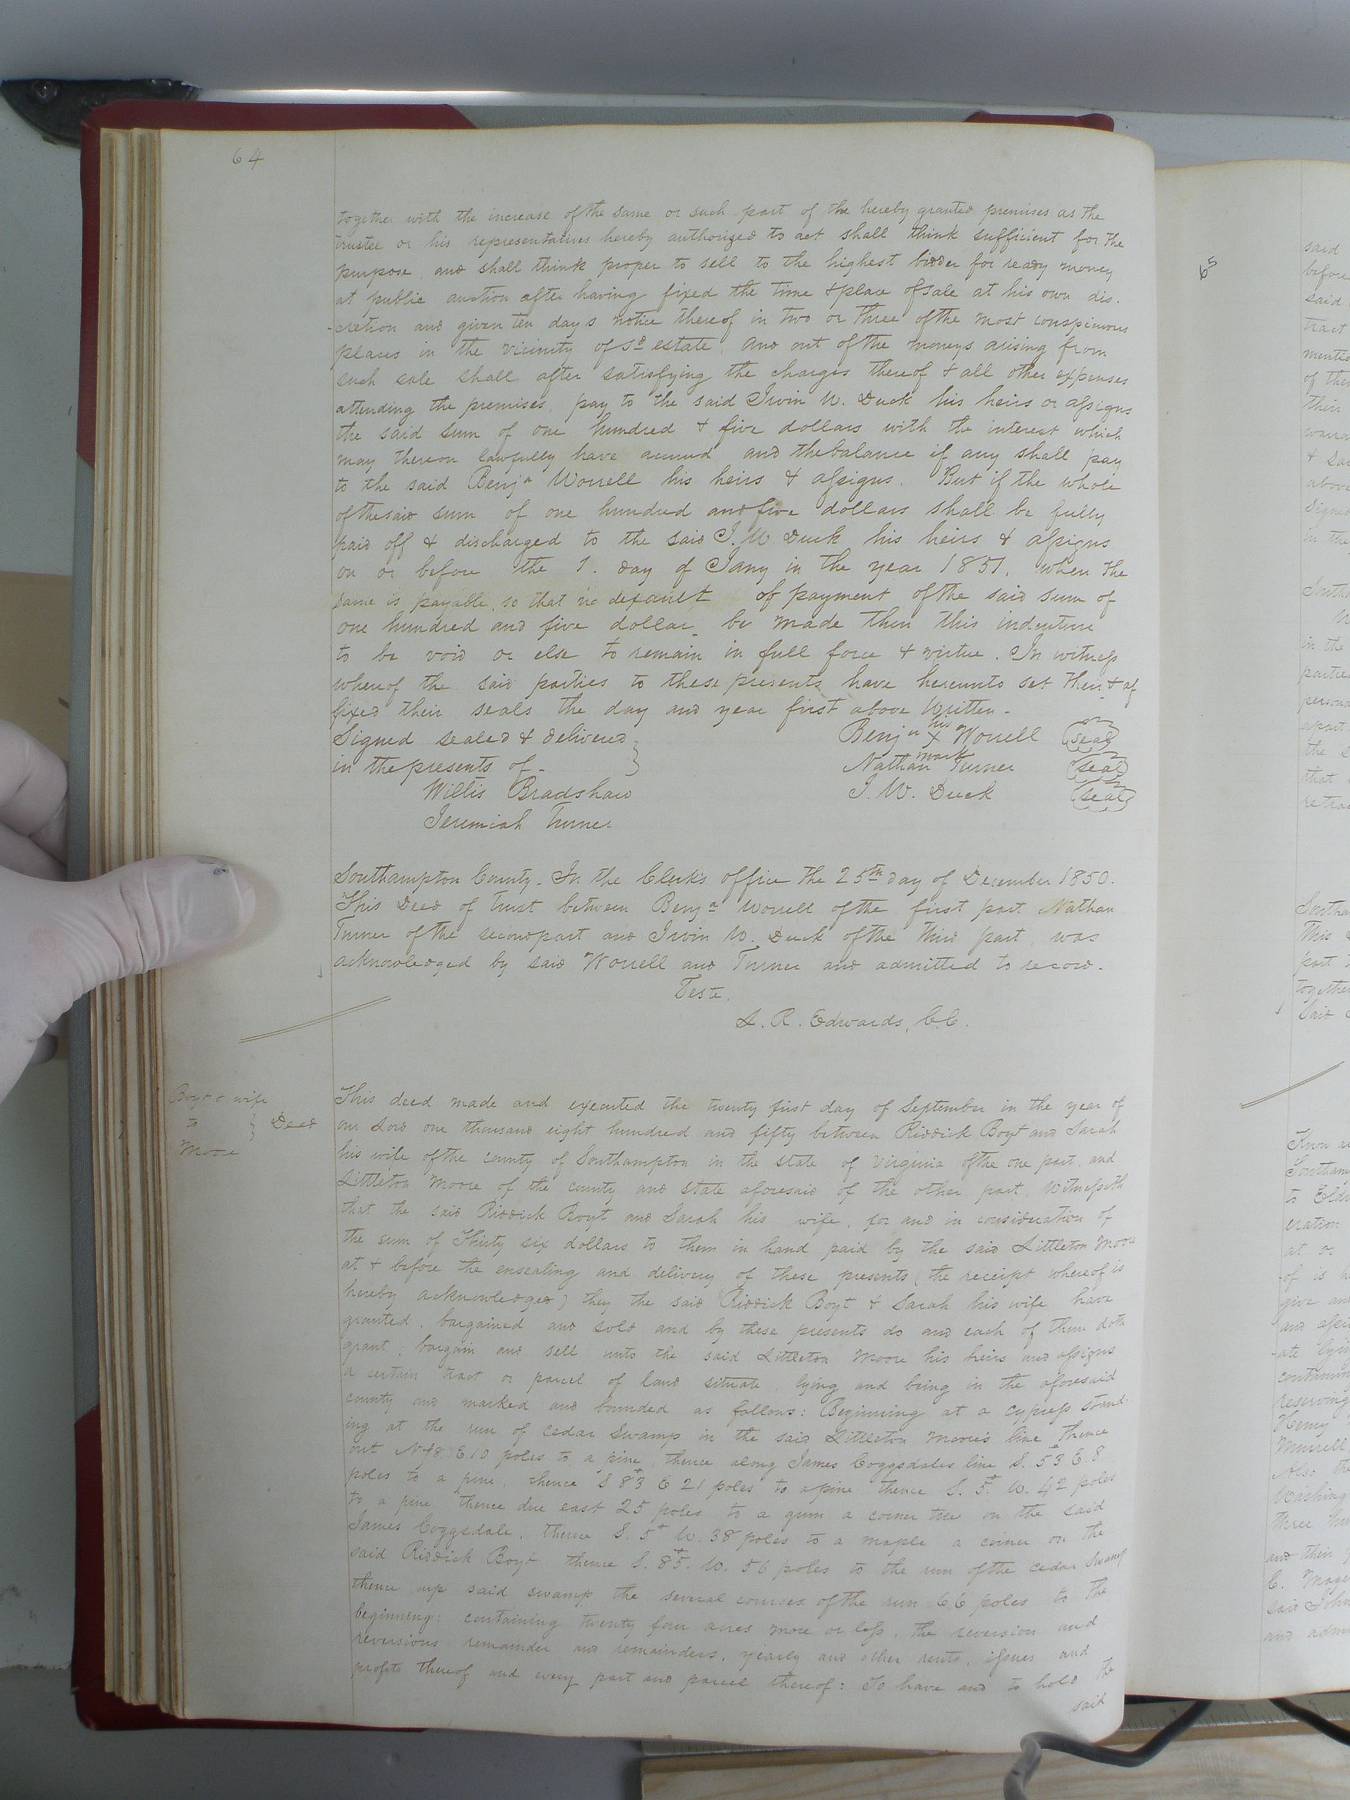 64
together with the increase of the same or such part of the hereby granted premises as the
trustee or his representatives hereby authorized to act shall think sufficient for the
purpose, and shall think proper to sell to the highest bidder for ready money
at public auction after having fixed the time & place of sale at his own dis-
-cretion and given ten days notice thereof in two or three of the most conspicuous
places in the vicinity of sd estate, and out of the moneys arising from
such sale shall after satisfying the charges thereof & all other expenses
attending the premises, pay to the said Irvin W. Duck his heirs or assigns
the said sum of one hundred & five dollars with the interest which
may thereon lawfully have accrued and the balance if any shall pay
to the said Benja Worrell his heirs & assigns. But if the whole
of the said sum of one hundred and five dollars shall be fully
paid off & discharged to the said I. W. Duck his heirs & assigns
on or before the 1. day of Jany in the year 1851, when the
same is payable, so that no default of payment of the said sum of
one hundred and five dollar be made then this indenture
to be void or else to remain in full force & virtue. In witness
whereof the said parties to these presents have hereunto set their & af
fixed their seals the day and year first above written.
Signed sealed & delivered
in the presents of
Willis Bradshaw
Jeremiah Turner
Benja his x mark Worrell (seal)
Nathan Turner (seal)
I. W. Duck (seal)
Southampton County. In the Clerk's office the 25th day of December 1850.
This Deed of trust between Benja Worrell of the first part Nathan
Turner of the second part and Irvin W. Duck of the third part, was
acknowledged by said Worrell and Turner and admitted to record.
Teste,
L. R. Edwards, CC.
Boyt & wife
to } Deed
Moore
This deed made and executed the twenty first day of September in the year of
our Lord one thousand eight hundred and fifty between Riddick Boyt and Sarah
his wife of the county of Southampton in the state of Virginia of the one part, and
Littleton Moore of the county and state aforesaid of the other part, Witnesseth
that the said Riddick Boyt and Sarah his wife, for and in consideration of
the sum of Thirty six dollars to them in hand paid by the said Littleton Moore
at & before the ensealing and delivery of these presents (the receipt whereof is
hereby acknowledged) they the said Riddick Boyt & Sarah his wife have
granted, bargained and sold and by these presents do and each of them doth
grant, bargain and sell unto the said Littleton Moore his heirs and assigns
a certain tract or parcel of land situate, lying and being in the aforesaid
county and marked and bounded as follows: Beginning at a cypress stand-
ing at the run of Cedar Swamp in the said Littleton Moore's line thence
out N 48 E 10 poles to a pine, thence along James Coggsdales line S. 53 E 8
poles to a pine, thence S 83 E 21 poles to a pine thence S. 5 W. 42 poles
to a pine thence due east 25 poles to a gum a corner tree on the said
James Coggsdale, thence S. 5 W. 38 poles to a maple a corner on the
said Riddick Boyt thence S. 85. W. 56 poles to the run of the cedar swamp
thence up said swamp the several courses of the run 66 poles to the
beginning: containing twenty four acres more or less, the reversion and
reversions remainder and remainders, yearly and other rents, issues and
profits thereof and every part and parcel thereof: To have and to hold the
said
65
said
before
said
tract
of the
their
& sa
above
Signed
in the
in the
partie
person
apart
the
that
Southa
This
part
together
Said
Know
Southam
to
eration
at or
of is
give and
and assi
-ate lyin
containin
reserving
Henry
Murrell
Also the
Washing
three hun
and their
C.
said John
and adm